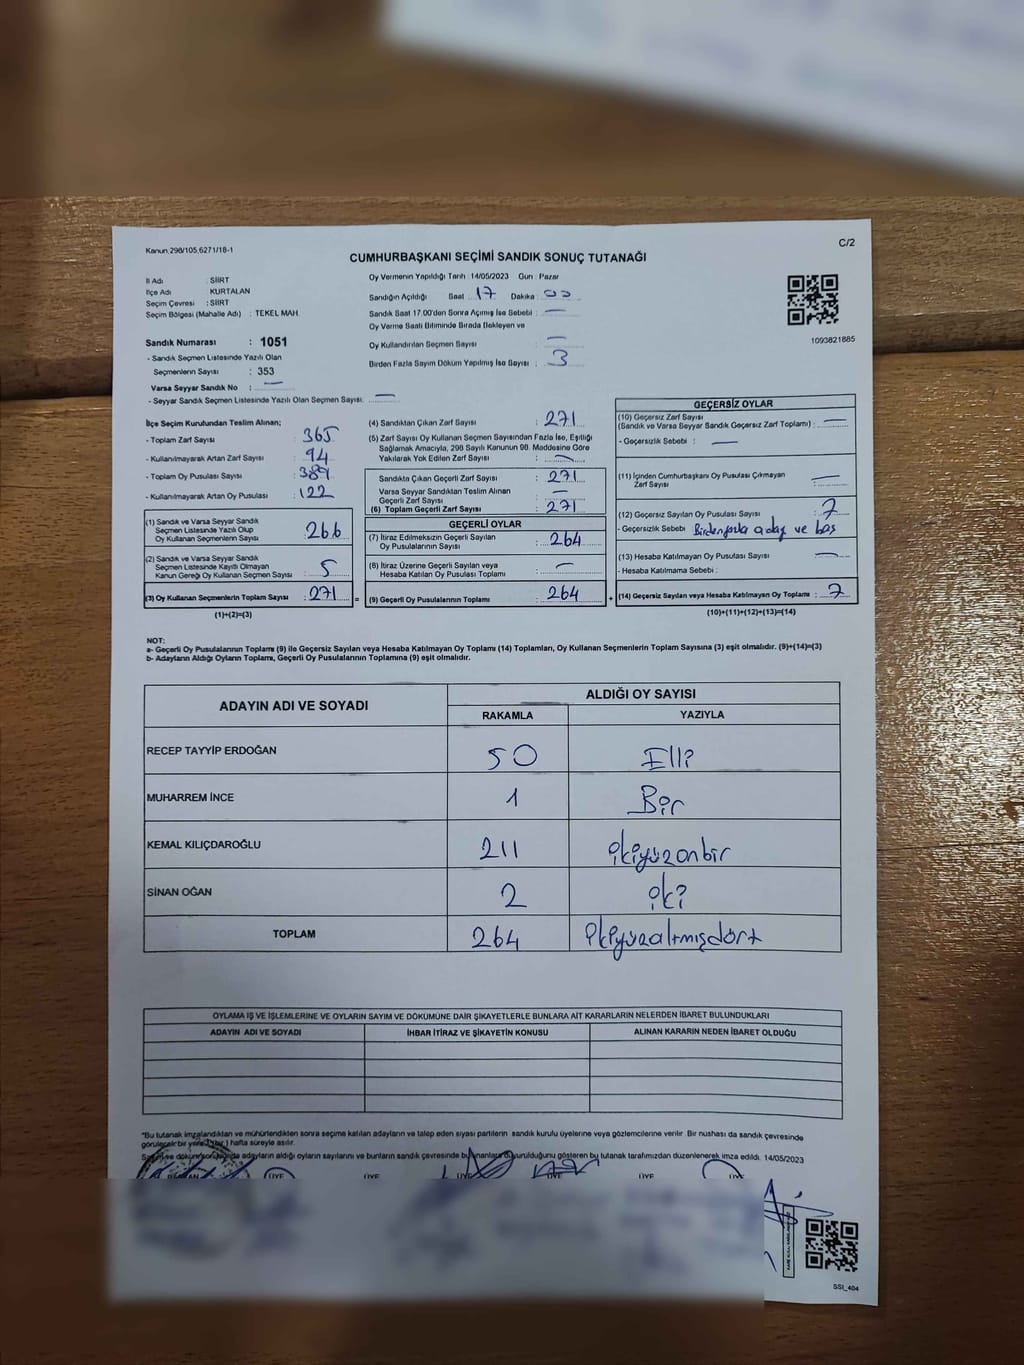 Kanun 298/105,6271/18-1
C/2
CUMHURBAŞKANI SEÇİMİ SANDIK SONUÇ TUTANAĞI
İl Adı : SİİRT
İlçe Adı : KURTALAN
Seçim Çevresi : SİİRT
Seçim Bölgesi (Mahalle Adı) : TEKEL MAH.
Oy Vermenin Yapıldığı Tarih : 14/05/2023 Gün : Pazar
Sandığın Açıldığı Saat 17 Dakika : 00
Sandık Saat 17.00'den Sonra Açımış İse Sebebi : —
Oy Verme Saati Bitiminde Sırada Bekleyen ve
Oy Kullandırılan Seçmen Sayısı : —
Birden Fazla Sayım Döküm Yapılmış İse Sayısı : 3
1093821885
Sandık Numarası : 1051
- Sandık Seçmen Listesinde Yazılı Olan
Seçmenlerin Sayısı : 353
Varsa Seyyar Sandık No : —
- Seyyar Sandık Seçmen Listesinde Yazılı Olan Seçmen Sayısı: —
İlçe Seçim Kurulundan Teslim Alınan;
- Toplam Zarf Sayısı : 365
- Kullanılmayarak Artan Zarf Sayısı : 94
- Toplam Oy Pusulası Sayısı : 389
- Kullanılmayarak Artan Oy Pusulası : 122
(1) Sandık ve Varsa Seyyar Sandık
Seçmen Listesinde Yazılı Olup
Oy Kullanan Seçmenlerin Sayısı : 266
(2) Sandık ve Varsa Seyyar Sandık
Seçmen Listesinde Kayıtlı Olmayan
Kanun Gereği Oy Kullanan Seçmen Sayısı : 5
(3) Oy Kullanan Seçmenlerin Toplam Sayısı : 271 =
(1)+(2)=(3)
(4) Sandıktan Çıkan Zarf Sayısı : 271
(5) Zarf Sayısı Oy Kullanan Seçmen Sayısından Fazla İse, Eşitliği
Sağlamak Amacıyla, 298 Sayılı Kanunun 98. Maddesine Göre
Yakılarak Yok Edilen Zarf Sayısı : —
Sandıkta Çıkan Geçerli Zarf Sayısı : 271
Varsa Seyyar Sandıktan Teslim Alınan
Geçerli Zarf Sayısı : —
(6) Toplam Geçerli Zarf Sayısı : 271
GEÇERLİ OYLAR
(7) İtiraz Edilmeksizin Geçerli Sayılan
Oy Pusulalarının Sayısı : 264
(8) İtiraz Üzerine Geçerli Sayılan veya
Hesaba Katılan Oy Pusulası Toplamı : —
(9) Geçerli Oy Pusulalarının Toplamı : 264 +
GEÇERSİZ OYLAR
(10) Geçersiz Zarf Sayısı
(Sandık ve Varsa Seyyar Sandık Geçersiz Zarf Toplamı) : —
- Geçersizlik Sebebi : —
(11) İçinden Cumhurbaşkanı Oy Pusulası Çıkmayan
Zarf Sayısı : —
(12) Geçersiz Sayılan Oy Pusulası Sayısı : 7
- Geçersizlik Sebebi : Birdenfazla aday ve boş
(13) Hesaba Katılmayan Oy Pusulası Sayısı : —
- Hesaba Katılmama Sebebi :
(14) Geçersiz Sayılan veya Hesaba Katılmayan Oy Toplamı : 7
(10)+(11)+(12)+(13)=(14)
NOT:
a- Geçerli Oy Pusulalarının Toplamı (9) ile Geçersiz Sayılan veya Hesaba Katılmayan Oy Toplamı (14) Toplamları, Oy Kullanan Seçmenlerin Toplam Sayısına (3) eşit olmalıdır. (9)+(14)=(3)
b- Adayların Aldığı Oyların Toplamı, Geçerli Oy Pusulalarının Toplamına (9) eşit olmalıdır.
ADAYIN ADI VE SOYADI ALDIĞI OY SAYISI
RAKAMLA YAZIYLA
RECEP TAYYİP ERDOĞAN 50 Elli
MUHARREM İNCE 1 Bir
KEMAL KILIÇDAROĞLU 211 ikiyüzonbir
SİNAN OĞAN 2 iki
TOPLAM 264 ikiyüzaltmışdört
OYLAMA İŞ VE İŞLEMLERİNE VE OYLARIN SAYIM VE DÖKÜMÜNE DAİR ŞİKAYETLERLE BUNLARA AİT KARARLARIN NELERDEN İBARET BULUNDUKLARI
ADAYIN ADI VE SOYADI İHBAR İTİRAZ VE ŞİKAYETİN KONUSU ALINAN KARARIN NEDEN İBARET OLDUĞU
"Bu tutanak imzalandıktan ve mühürlendikten sonra seçime katılan adayların ve talep eden siyasi partilerin sandık kurulu üyelerine veya gözlemcilerine verilir. Bir nüshası da sandık çevresinde
görülecek bir yere 1 (bir) hafta süreyle asılır.
adayların aldığı oyların sayılarını ve bunların sandık çevresinde duyurulduğunu gösteren bu tutanak tarafımızdan düzenlenerek imza edildi. 14/05/2023
BAŞKAN ÜYE ÜYE ÜYE ÜYE ÜYE ÜYE
SSI_404